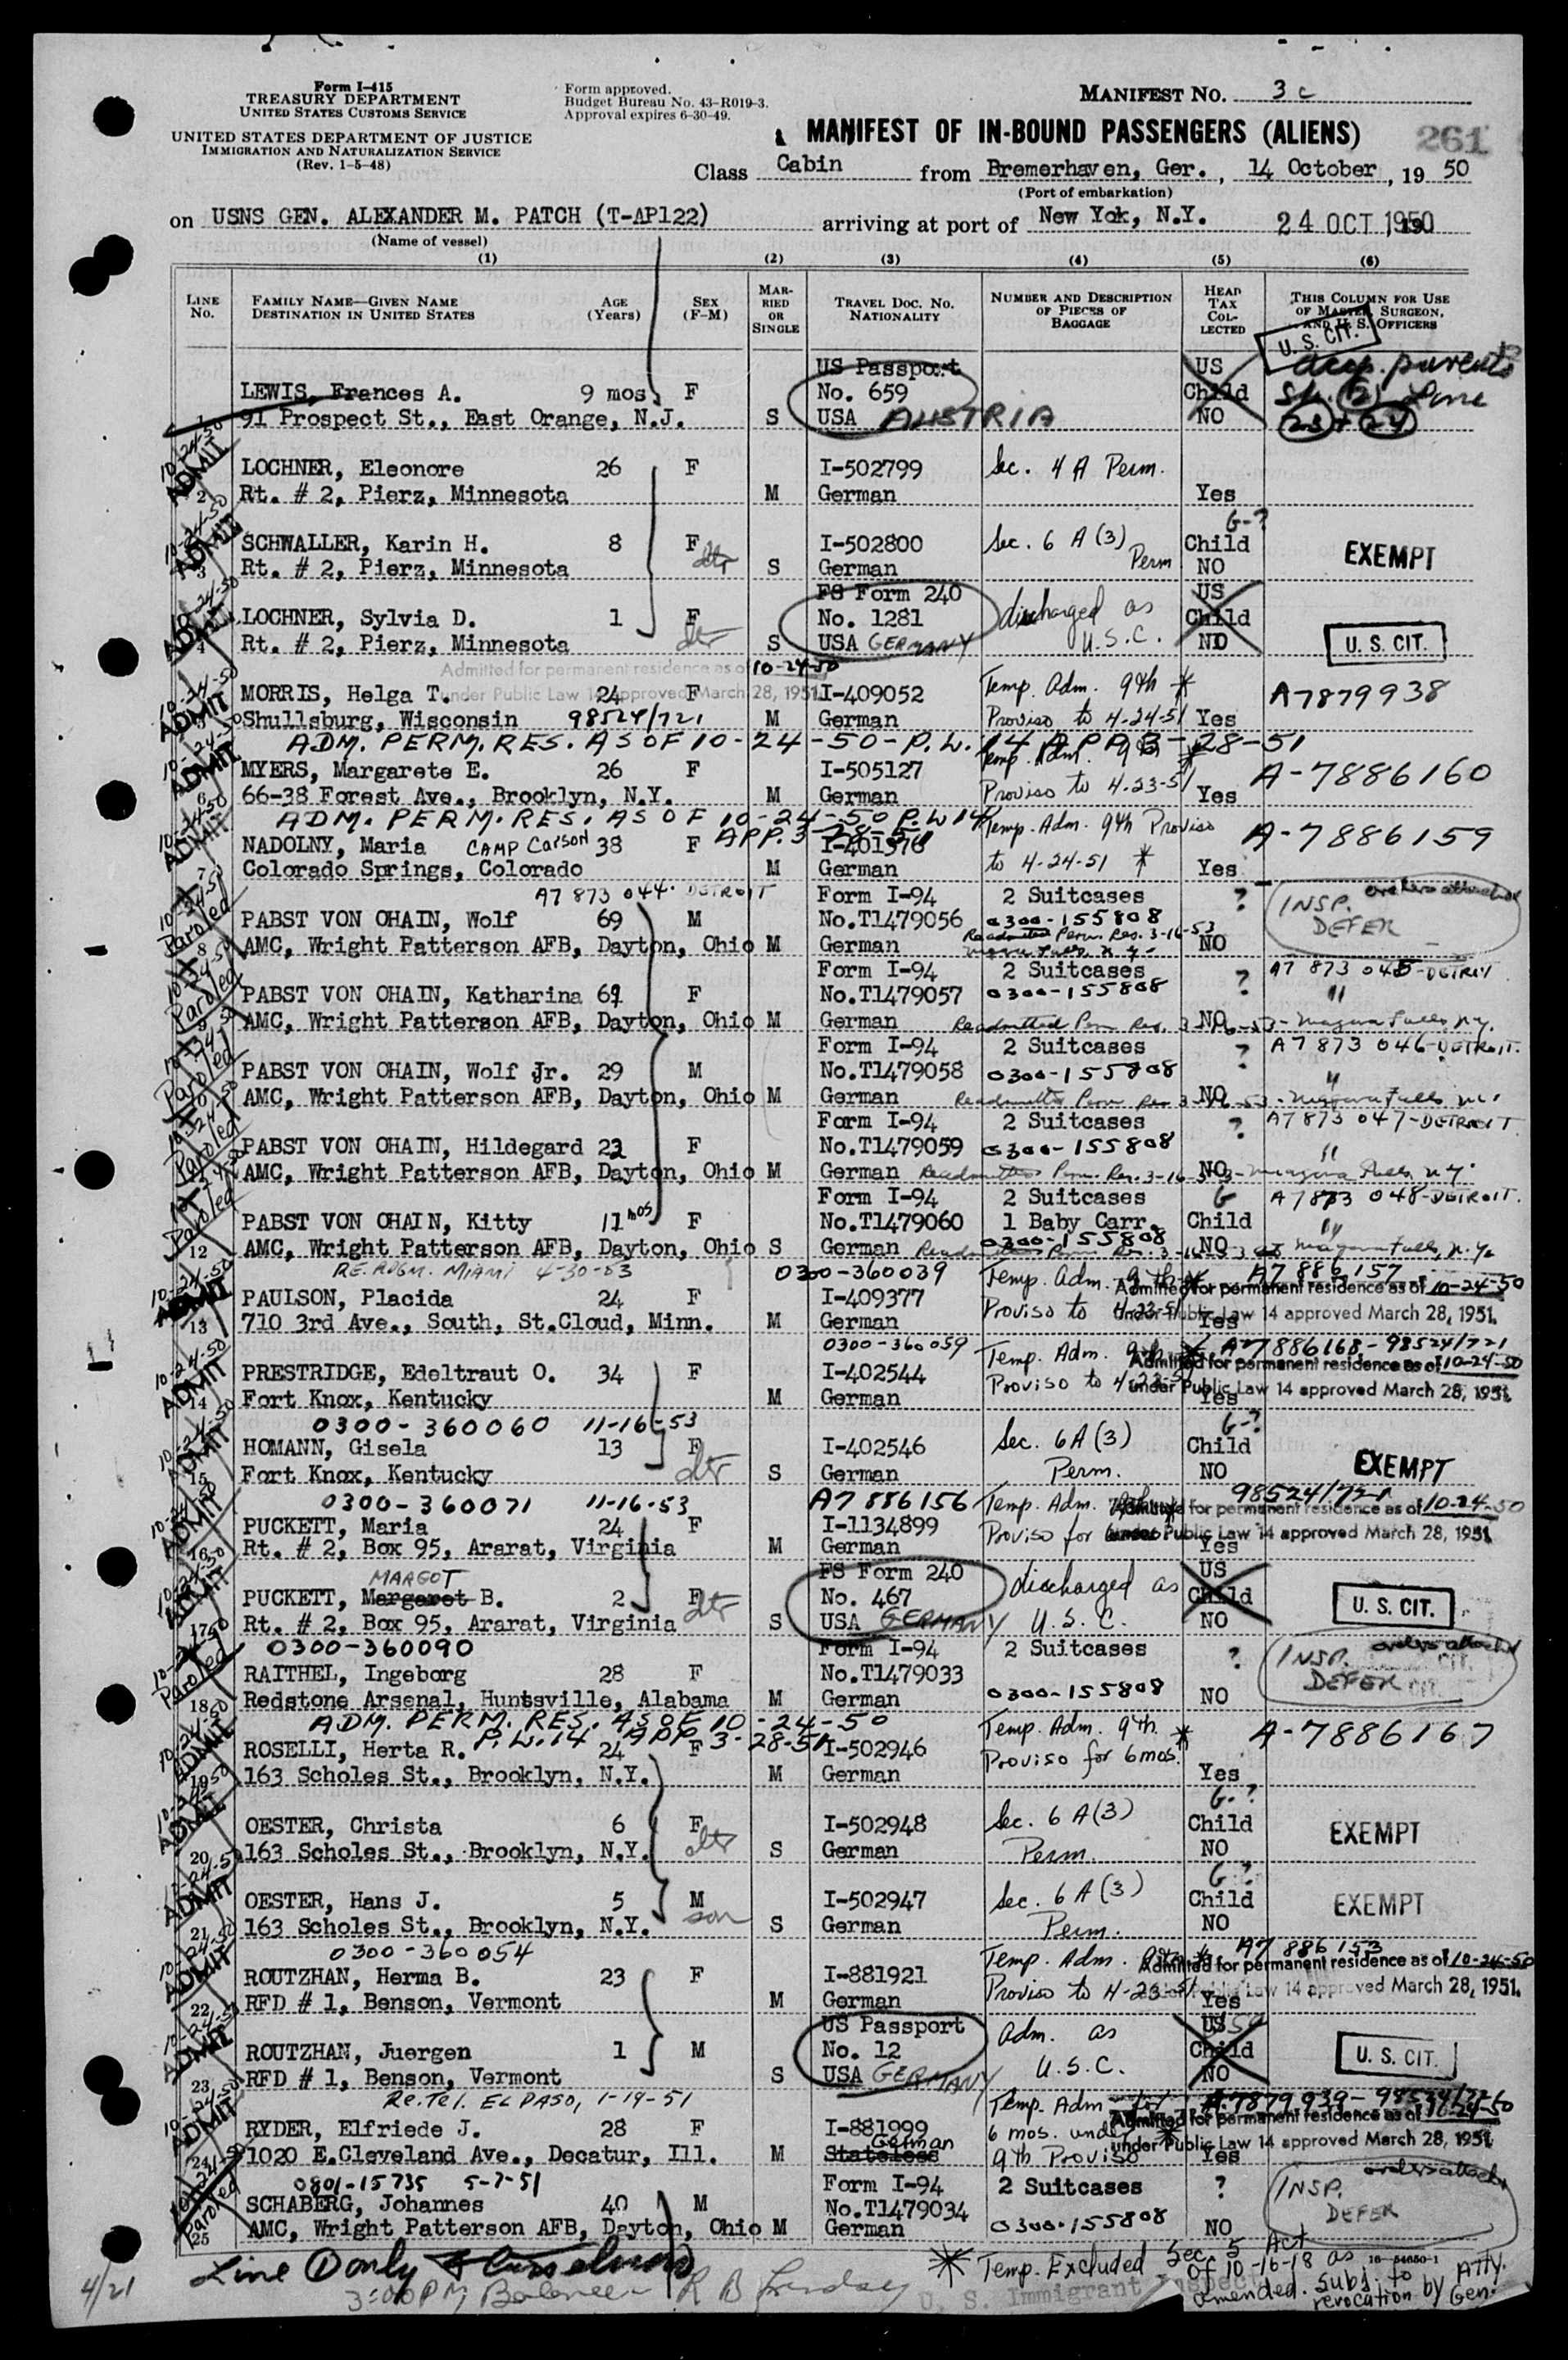 Form I-415
TREASURY DEPARTMENT
UNITED STATES CUSTOMS SERVICE
UNITED STATES DEPARTMENT OF JUSTICE
IMMIGRATION AND NATURALIZATION SERVICE
(Rev. 1-5-48)
Form approved.
Budget Bureau No. 43-R019-3.
Approval expires 6-30-49.
MANIFEST NO. 3 c
MANIFEST OF IN-BOUND PASSENGERS (ALIENS) 261
Class Cabin from Bremerhaven, Ger., 14 October, 19 50
(Port of embarkation)
on USNS GEN. ALEXANDER M. PATCH (T-AP122) arriving at port of New Yok, N.Y. 24 OCT 1950
(Name of vessel)
(1) (2) (3) (4) (5) (6)
LINE No. FAMILY NAME—GIVEN NAME DESTINATION IN UNITED STATES AGE (Years) SEX (F-M) MARRIED OR SINGLE TRAVEL DOC. NO. NATIONALITY NUMBER AND DESCRIPTION OF PIECES OF BAGGAGE HEAD TAX COLLECTED THIS COLUMN FOR USE OF MASTER, SURGEON, AND U. S. OFFICERS
U. S. CIT.
US Passport US accp. parents
LEWIS, Frances A. 9 mos F No. 659 Child Sh. (2) Line
1 91 Prospect St., East Orange, N.J. S USA AUSTRIA NO 23 + 24
10-24-50 ADMIT
LOCHNER, Eleonore 26 F I-502799 Sec. 4 A Perm.
2 Rt. # 2, Pierz, Minnesota M German Yes
10-24-50 ADMIT G-?
SCHWALLER, Karin H. 8 F dtr I-502800 Sec. 6 A (3) Child EXEMPT
3 Rt. # 2, Pierz, Minnesota S German Perm NO
10-24-50 ADMIT FS Form 240 US
LOCHNER, Sylvia D. 1 F dtr No. 1281 discharged as Child
4 Rt. # 2, Pierz, Minnesota S USA GERMANY U.S.C. NO U. S. CIT.
Admitted for permanent residence as of 10-24-50
under Public Law 14 approved March 28, 1951
10-24-50 ADMIT
MORRIS, Helga T. 24 F I-409052 Temp. Adm. 9th * A7879938
Shullsburg, Wisconsin 98524/721 M German Proviso to 4-24-51 Yes
ADM. PERM. RES. AS OF 10-24-50-P.L. 14 APP. 3-28-51
10-24-50 ADMIT
MYERS, Margarete E. 26 F I-505127 Temp. Adm. 9th * A-7886160
6 66-38 Forest Ave., Brooklyn, N.Y. M German Proviso to 4-23-51 Yes
ADM. PERM. RES. AS OF 10-24-50 P.L. 14 APP. 3-28-51
10-24-50 ADMIT
NADOLNY, Maria CAMP Carson 38 F I-401376 Temp. Adm. 9th Proviso A-7886159
7 Colorado Springs, Colorado M German to 4-24-51 * Yes
A7 873 044. DETROIT Form I-94 2 Suitcases ? INSP. orders attached
10-24-50 Paroled
PABST VON OHAIN, Wolf 69 M No.T1479056 0300-155808 DEFER
8 AMC, Wright Patterson AFB, Dayton, Ohio M German Readmitted Perm. Res. 3-16-53 Niagara Falls, N.Y. NO
Form I-94 2 Suitcases A7 873 045-DETROIT
10-24-50 Paroled
PABST VON OHAIN, Katharina 69 F No.T1479057 0300-155808 ? "
9 AMC, Wright Patterson AFB, Dayton, Ohio M German Readmitted Perm Res. 3-16-53 - Niagara Falls, N.Y. NO
Form I-94 2 Suitcases A7 873 046-DETROIT.
10-24-50 Paroled
PABST VON OHAIN, Wolf Jr. 29 M No.T1479058 0300-155808 ? "
AMC, Wright Patterson AFB, Dayton, Ohio M German Readmitted Perm Res 3-16-53 - Niagara Falls NY NO
Form I-94 2 Suitcases A7873 047-DETROIT.
10-24-50 Paroled
PABST VON OHAIN, Hildegard 22 F No.T1479059 0300-155808 ? "
AMC, Wright Patterson AFB, Dayton, Ohio M German Readmitted Perm. Res. 3-16-53 - Niagara Falls N.Y. NO
Form I-94 2 Suitcases G A7873 048-DETROIT.
Paroled
PABST VON OHAIN, Kitty 11 mos F No.T1479060 1 Baby Carr. Child "
12 AMC, Wright Patterson AFB, Dayton, Ohio S German 0300-155808 Readmitted Perm Res. 3-16-53 at Niagara Falls, N.Y. NO
RE. ADGM. MIAMI 4-30-53 0300-360039 Temp. Adm. 9th * A7 886157
10-24-50 ADMIT Admitted for permanent residence as of 10-24-50
PAULSON, Placida 24 F I-409377 Proviso to 4-23-51 under Public Law 14 approved March 28, 1951.
13 710 3rd Ave., South, St.Cloud, Minn. M German Yes
0300-360059 Temp. Adm. 9th * A-7886168 - 98524/721
10-24-50 ADMIT Admitted for permanent residence as of 10-24-50
PRESTRIDGE, Edeltraut O. 34 F I-402544 Proviso to 4-23-51 under Public Law 14 approved March 28, 1951.
14 Fort Knox, Kentucky M German Yes
0300-360060 11-16-53 G-?
10-24-50 ADMIT
HOMANN, Gisela 13 F dtr I-402546 Sec. 6A(3) Child EXEMPT
15 Fort Knox, Kentucky S German Perm. NO
0300-360071 11-16-53 A7 886156 Temp. Adm. 98524/721
ADMIT Admitted for permanent residence as of 10-24-50
PUCKETT, Maria 24 F I-1134899 Proviso for under Public Law 14 approved March 28, 1951.
16 Rt. # 2, Box 95, Ararat, Virginia M German Yes
MARGOT FS Form 240 US
ADMIT
PUCKETT, Margaret B. 2 F dtr No. 467 discharged as Child U. S. CIT.
17 Rt. # 2, Box 95, Ararat, Virginia S USA GERMANY U.S.C. NO
0300-360090 Form I-94 2 Suitcases INSP. orders attached
Paroled
RAITHEL, Ingeborg 28 F No.T1479033 ? DEFER
18 Redstone Arsenal, Huntsville, Alabama M German 0300-155808 NO
ADM. PERM. RES. AS OF 10-24-50
P.L. 14 APP 3-28-51
ADMIT
ROSELLI, Herta R. 24 F I-502946 Temp. Adm. 9th * A-7886167
19 163 Scholes St., Brooklyn, N.Y. M German Proviso for 6 mos. Yes
G.?
ADMIT
OESTER, Christa 6 F dtr I-502948 Sec. 6 A(3) Child EXEMPT
20 163 Scholes St., Brooklyn, N.Y. S German Perm. NO
G.?
ADMIT
OESTER, Hans J. 5 M son I-502947 Sec. 6 A(3) Child EXEMPT
21 163 Scholes St., Brooklyn, N.Y. S German Perm. NO
0300-360054 Temp. Adm. A7 886153
ADMIT Admitted for permanent residence as of 10-24-50
ROUTZHAN, Herma B. 23 F I-881921 Proviso to 4-23-51 under Public Law 14 approved March 28, 1951.
22 RFD # 1, Benson, Vermont M German Yes
US Passport US
10-24-50 ADMIT
ROUTZHAN, Juergen 1 M No. 12 Adm. as Child U. S. CIT.
23 RFD # 1, Benson, Vermont S USA GERMANY U.S.C. NO
Re. Tel. EL PASO, 1-19-51 Temp. Adm for A-7879939 - 98524/721
10-24-50 ADMIT Admitted for permanent residence as of 10-24-50
RYDER, Elfriede J. 28 F I-881999 6 mos. under * under Public Law 14 approved March 28, 1951
24 1020 E.Cleveland Ave., Decatur, Ill. M Stateless German 9th Proviso Yes
0801-15735 5-7-51 Form I-94 2 Suitcases ? INSP. orders attached
Paroled
SCHABERG, Johannes 40 M No.T1479034 DEFER
25 AMC, Wright Patterson AFB, Dayton, Ohio M German 0300-155808 NO
Line 1 only
3:00 PM, Balance R B Lindsay
U. S. Immigrant Inspector
* Temp. Excluded Sec. 5 Act of 10-16-18 as amended. Subj. to revocation by Atty. Gen.
16-54650-1
4/21